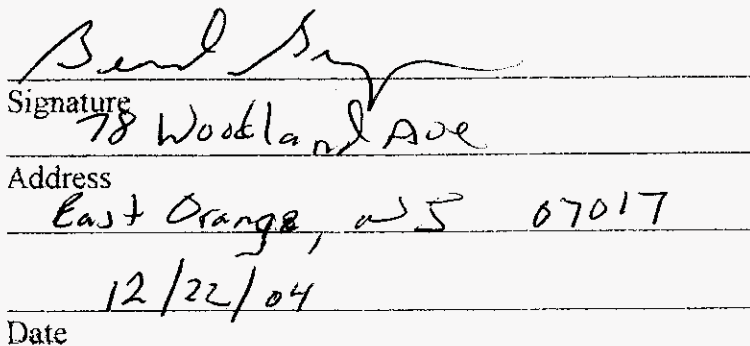 Signature
78 Woodland Ave
Address
East Orange, NJ 07017
12/22/04
Date